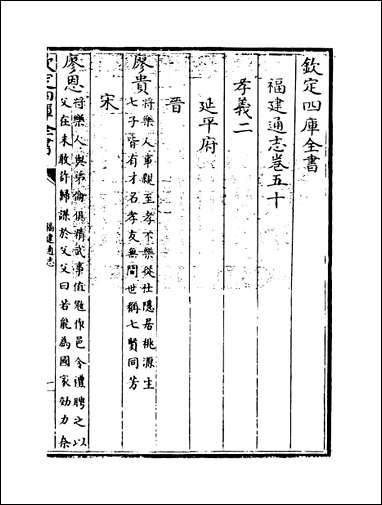 欽定四庫全書
福建通志卷五十
孝義二
延平府
晉
廖貴將樂人事親至孝不樂從仕隱居桃源生
七子皆有才名孝友無間世稱七賢同芳
宋
廖恩將樂人與弟倫俱精武事值寇作邑令禮聘之以
父在未敢許歸謀於父父曰若能為國家効力奈
欽定四庫全書
福建通志
一